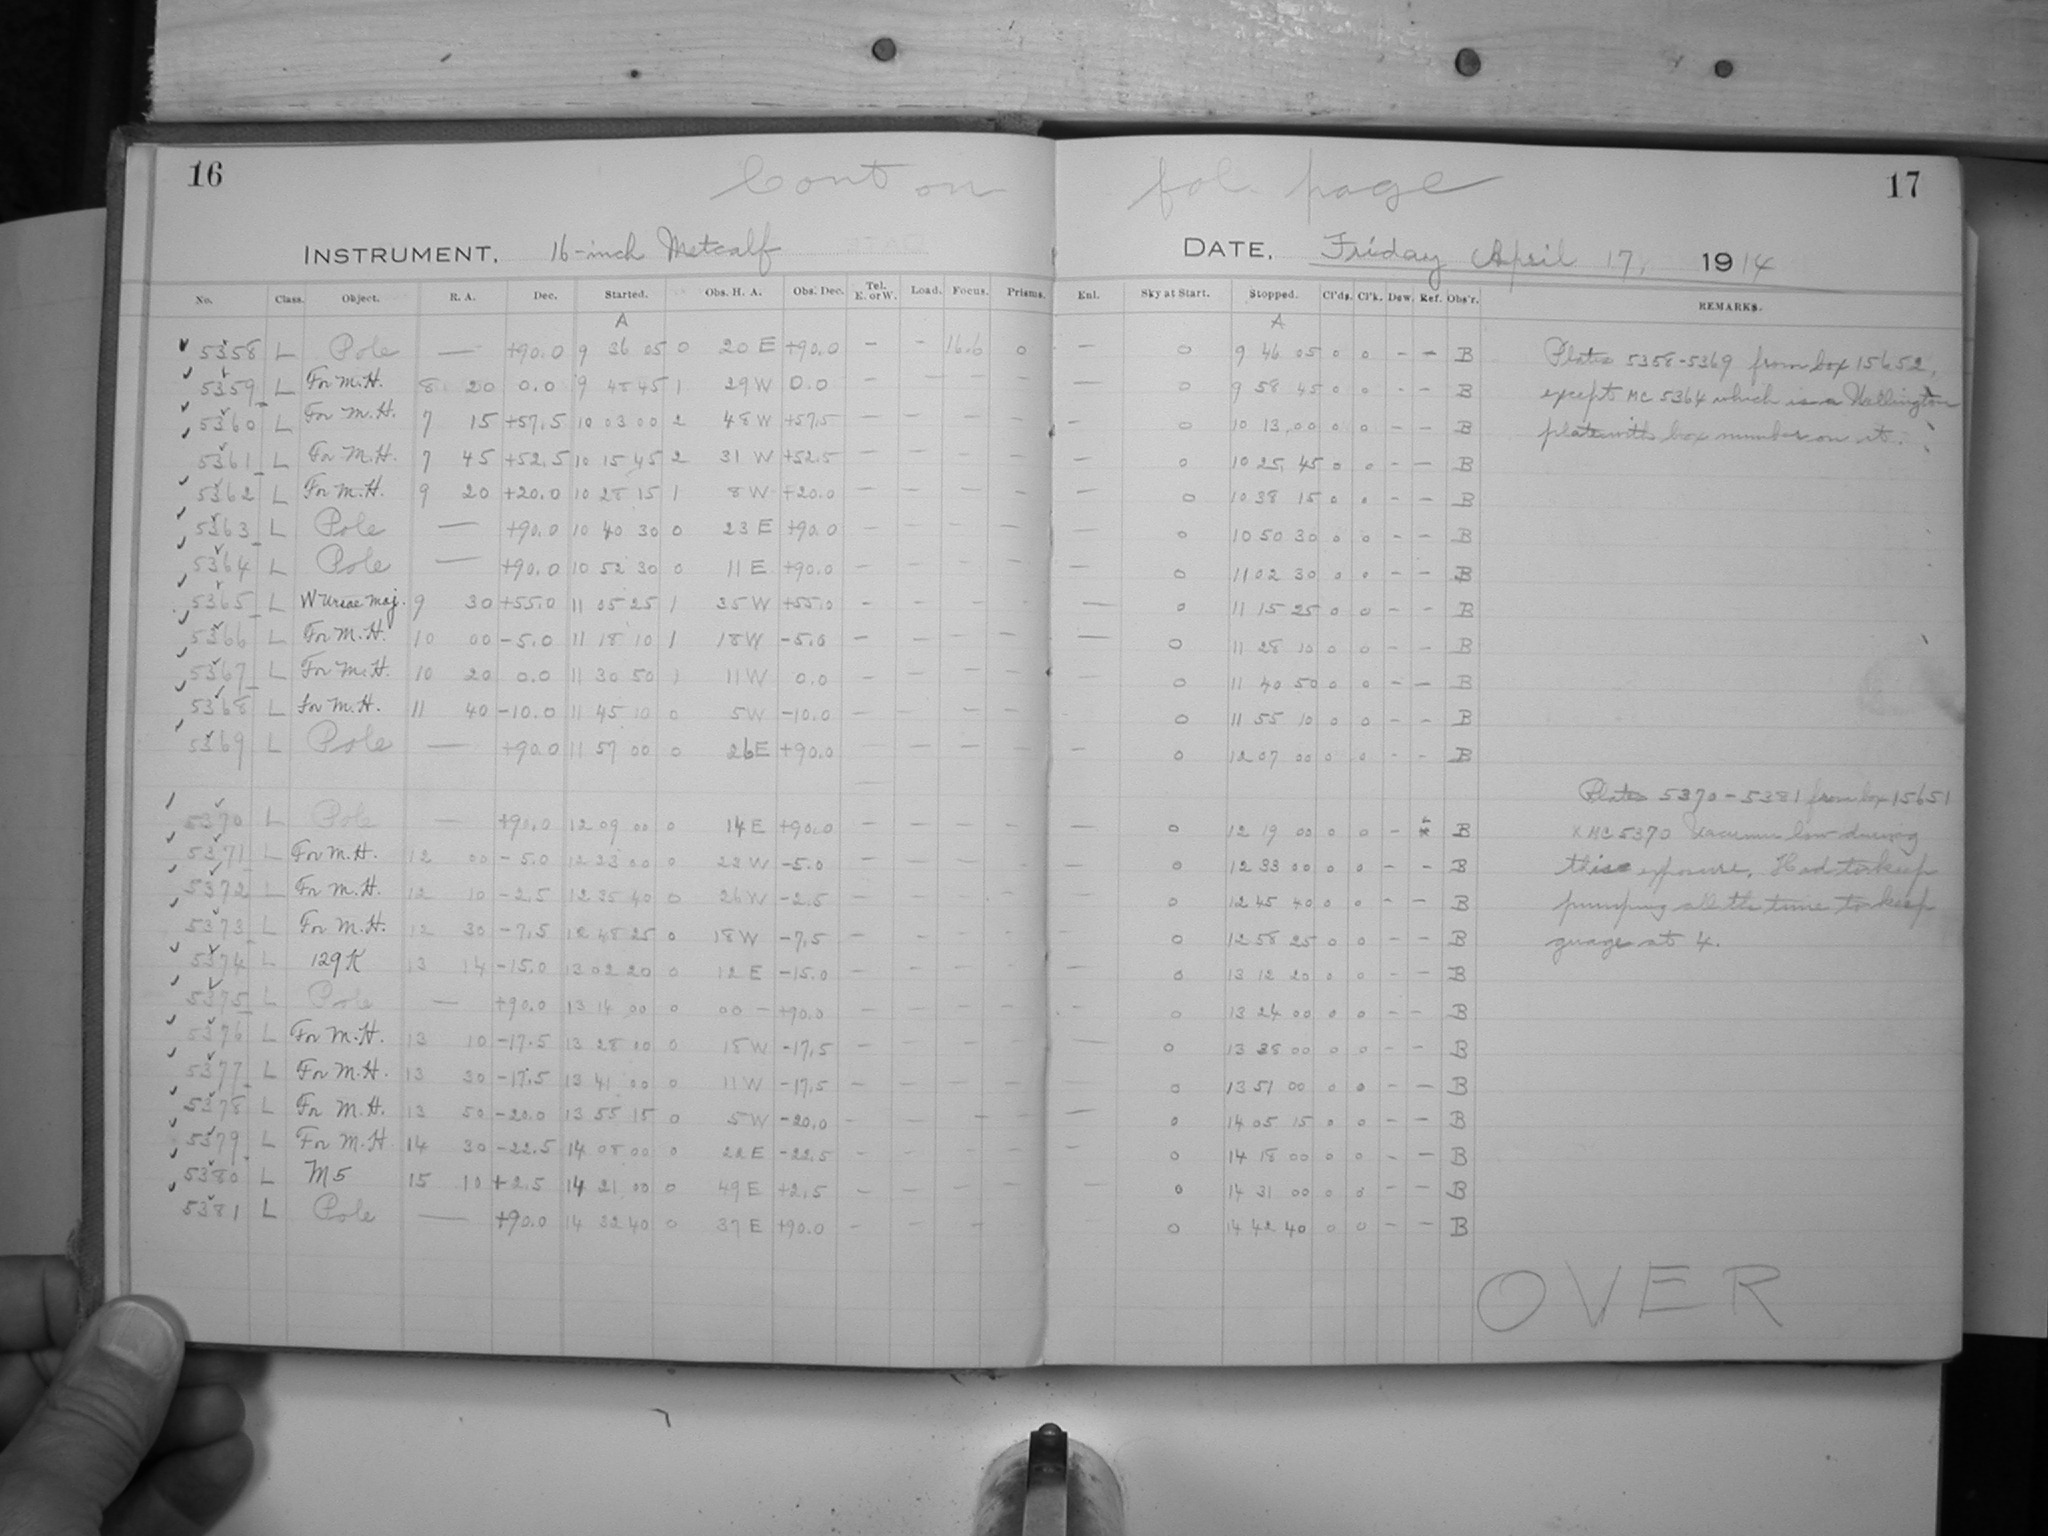 16 Cont on fol. page 17
INSTRUMENT. 16-inch Metcalf DATE. Friday April 17, 1914
No. Class. Object. R. A. Dec. Started. Obs. H. A. Obs. Dec. Tel. E. or W. Load. Focus. Prisms. Enl. Sky at Start. Stopped. Cl'ds. Cl'k. Dew. Ref. Obs'r. REMARKS.
A A
5358 L Pole — +90.0 9 36 05 0 20 E +90.0 – – 16.6 0 — 0 9 46 05 0 0 – – B Plates 5358-5369 from box 15652,
5359 L For M.H. 8 20 0.0 9 48 45 1 29 W 0.0 — — — — — 0 9 58 45 0 0 – – B except MC 5364 which is a Wellington
5360 L For M.H. 7 15 +57.5 10 03 00 2 48 W +57.5 — — — — — 0 10 13 00 0 0 – – B plate with box number on it.
5361 L For M.H. 7 45 +52.5 10 15 45 2 31 W +52.5 — — — — — 0 10 25 45 0 0 – – B
5362 L For M.H. 9 20 +20.0 10 28 15 1 8 W +20.0 — — — — — 0 10 38 15 0 0 – – B
5363 L Pole — +90.0 10 40 30 0 23 E +90.0 — — — — — 0 10 50 30 0 0 – – B
5364 L Pole — +90.0 10 52 30 0 11 E +90.0 — — — — — 0 11 02 30 0 0 – – B
5365 L W Ursae Maj. 9 30 +55.0 11 05 25 1 35 W +55.0 — — — — — 0 11 15 25 0 0 – – B
5366 L For M.H. 10 00 -5.0 11 18 10 1 18 W -5.0 — — — — — 0 11 28 10 0 0 – – B
5367 L For M.H. 10 20 0.0 11 30 50 1 11 W 0.0 — — — — 0 11 40 50 0 0 – – B
5368 L For M.H. 11 40 -10.0 11 45 10 0 5 W -10.0 — — — — 0 11 55 10 0 0 – – B
5369 L Pole — +90.0 11 57 00 0 26 E +90.0 — — — — — 0 12 07 00 0 0 – – B
Plates 5370-5381 from box 15651
5370 L Pole — +90.0 12 09 00 0 14 E +90.0 — — — — — 0 12 19 00 0 0 – x B x MC 5370 Vacuum low during
5371 L For M.H. 12 00 -5.0 12 23 00 0 23 W -5.0 — — — — — 0 12 33 00 0 0 – – B this exposure. Had to keep
5372 L For M.H. 12 10 -2.5 12 35 40 0 26 W -2.5 — — — — — 0 12 45 40 0 0 – – B pumping all the time to keep
5373 L For M.H. 12 30 -7.5 12 48 25 0 18 W -7.5 — — — — — 0 12 58 25 0 0 – – B guage at 4.
5374 L 129 K 13 14 -15.0 13 02 20 0 12 E -15.0 — — — — — 0 13 12 20 0 0 – – B
5375 L Pole — +90.0 13 14 00 0 00 — +90.0 — — — — — 0 13 24 00 0 0 – – B
5376 L For M.H. 13 10 -17.5 13 28 00 0 18 W -17.5 — — — — — 0 13 38 00 0 0 – – B
5377 L For M.H. 13 30 -17.5 13 41 00 0 11 W -17.5 — — — — — 0 13 51 00 0 0 – – B
5378 L For M.H. 13 50 -20.0 13 55 15 0 5 W -20.0 — — — — 0 14 05 15 0 0 – – B
5379 L For M.H 14 30 -22.5 14 08 00 0 22 E -22.5 — — — — — 0 14 18 00 0 0 – – B
5380 L M5 15 10 +2.5 14 21 00 0 49 E +2.5 — — — — — 0 14 31 00 0 0 – – B
5381 L Pole — +90.0 14 32 40 0 37 E +90.0 — — — 0 14 42 40 0 0 – – B
OVER